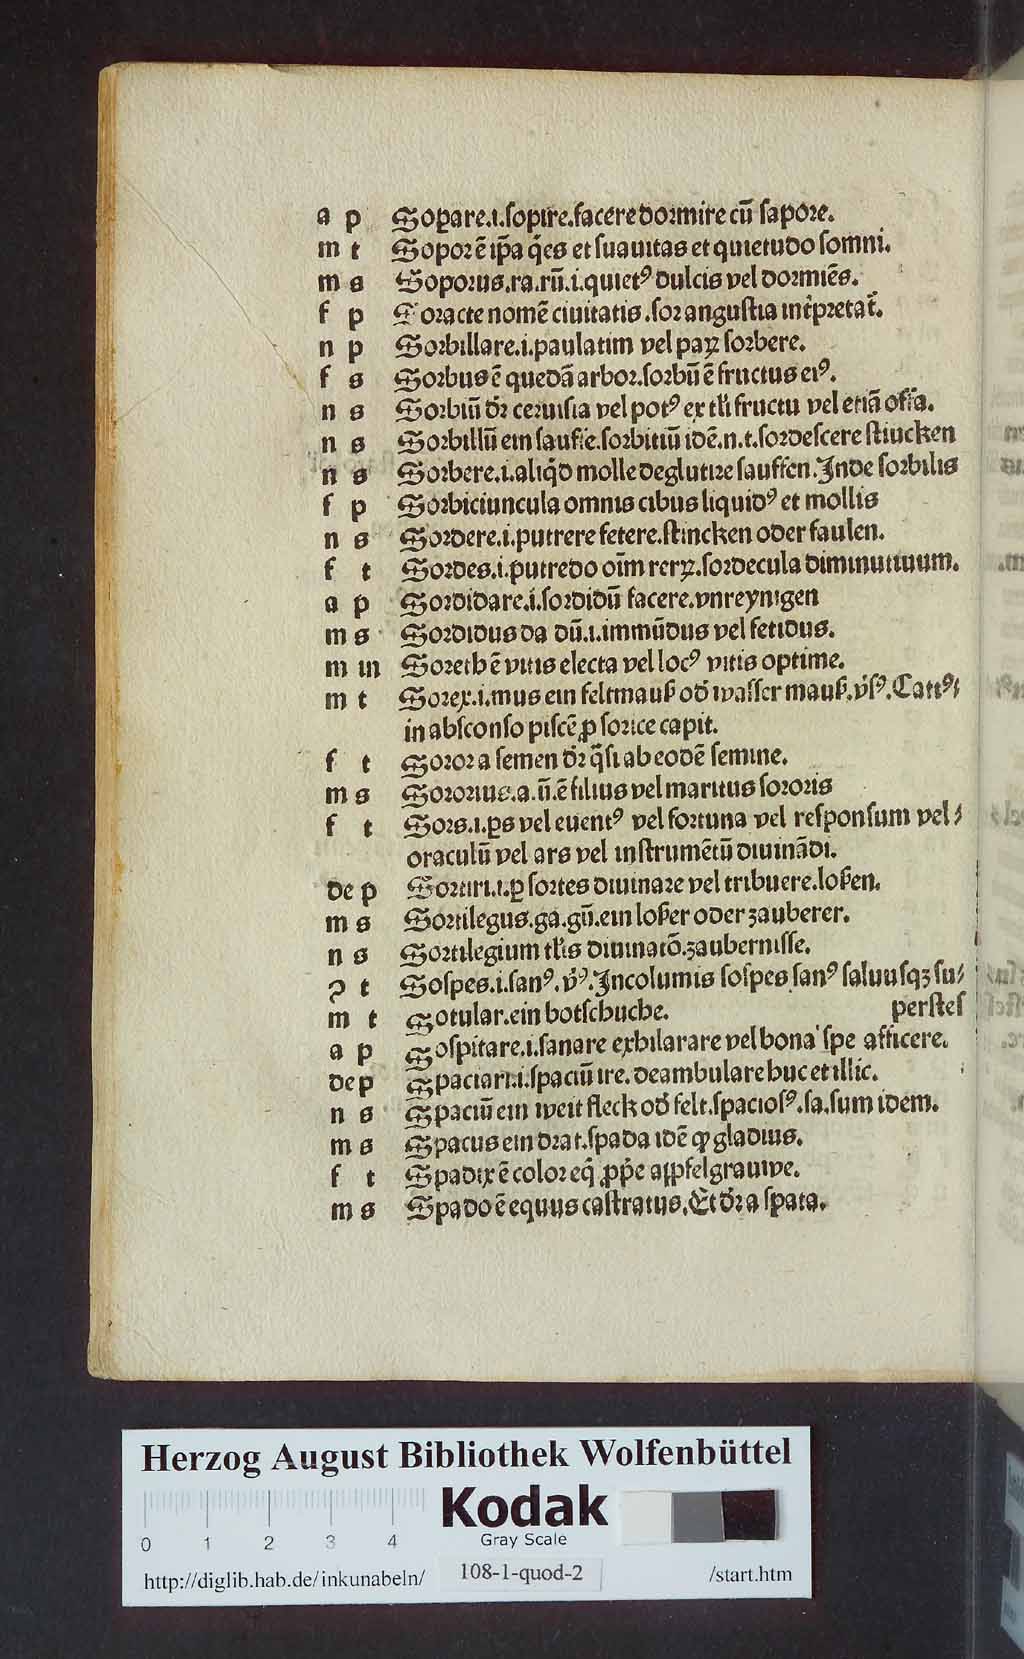 a p Soꝑare.i.ſopire.facere dormire cū ſapore.
m t Sopor ē ip̄a q̄es et ſuauitas et quietudo ſomni.
m s Soporus.ra.rū.i.quietꝰ dulcis vel dormiēs.
f p Soracte nomē ciuitatis.ſor anguſtia
n p Sorbillare.i.paulatim vel paꝝ ſorbere.
f s Sorbus ē quedā arbor.ſorbū ē fructus eiꝰ.
n s Sorbiū dr̄ ceruiſia vel potꝰ ex tli fructu vel etiā offa.
n s Sorbillū ein ſauffe.ſorbitiū idē.n.t.ſordeſcere ſtincken
n s Sorbere.i.aliqd̄ molle deglutire ſauffen.Inde ſorbilis
f p Sorbiciuncula omnis cibus liquidꝰ et mollis
n s Sordere.i.putrere fetere.ſtincken oder faulen.
f t Sordes.i.putredo oīm rerꝝ.ſordecula diminutiuum.
a p Sordidare.i.ſordidū facere.vnreynigen
m s Sordidus da dū.i.immūdus vel fetidus.
m in Soreth ē vitis electa vel locꝰ vitis optime.
m t Sorex.i.mus ein feltmauß od̄ waſſer mauß.v̄ſꝰ.Cattꝰ⸗
in abſconſo piſcē ꝓ ſorice capit.
f t Soror a ſemen dr̄ q̄ſi ab eodē ſemine.
m s Sororius.a.ū.ē filius vel maritus ſororis
f t Sors.i.ꝑs vel euentꝰ vel fortuna vel reſponſum vel⸗
oraculū vel ars vel inſtrumētū diuinādi.
de p Sortiri.i.ꝑ ſortes diuinare vel tribuere.loßen.
m s Sortilegus.ga.gū.ein loßer oder zauberer.
n s Sortilegium tl̄is diuinatō.zauberniſſe.
ꝯ t Soſpes.i.ſanꝰ.v̄ꝰ.Incolumis ſoſpes ſanꝰ ſaluuſqꝫ ſu⸗
m t Sotular.ein botſchuche. perſteſ
a p Soſpitare.i.ſanare exhilarare vel bona ſpe afficere.
de p Spaciari.i.ſpaciū ire.deambulare huc et illic.
n s Spaciū ein weit fleck od̄ felt.ſpacioſꝰ.ſa.ſum idem.
m s Spacus ein drat.ſpada idē ꝙ gladius.
f t Spadix ē color eq̄ ꝓp̄e apfelgrauwe.
m s Spado ē equus caſtratus.Et dr̄ a ſpata.
Herzog August Bibliothek Wolfenbüttel
0 1 2 3 4
Kodak
Gray Scale
http://diglib.hab.de/inkunabeln/ 108-1-quod-2 /start.htm